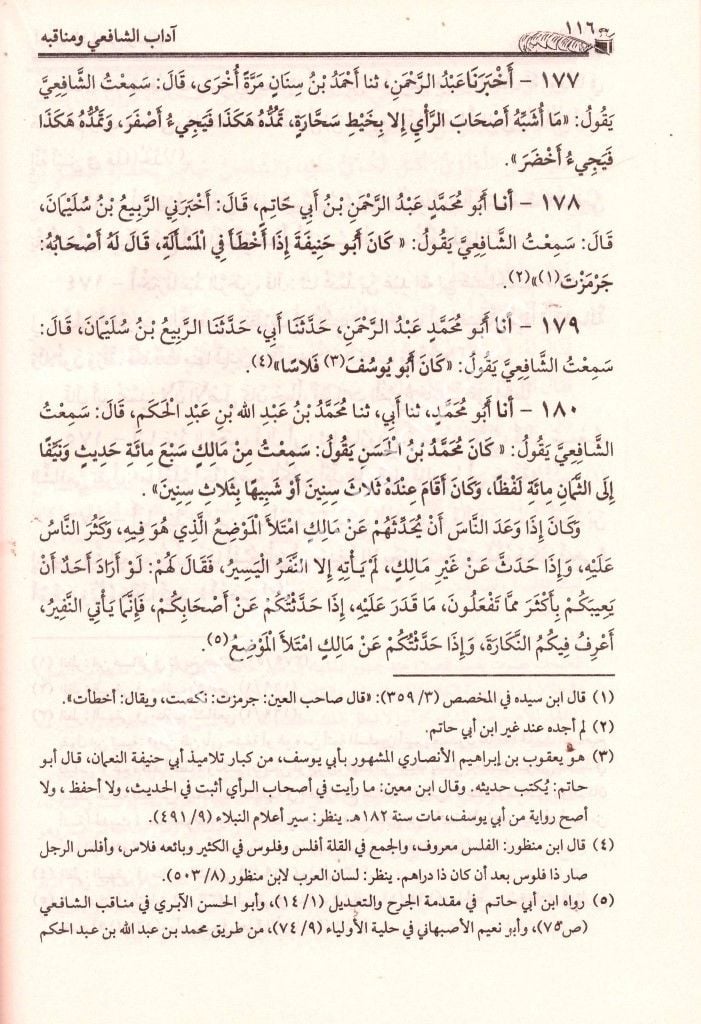 ١١٦
آداب الشافعي ومناقبه
١٧٧ - أَخْبَرَنَا عَبْدُ الرَّحْمَنِ، ثنا أَحْمَدُ بْنُ سِنَانٍ مَرَّةً أُخْرَى، قَالَ: سَمِعْتُ الشَّافِعِيَّ
يَقُولُ: «مَا أُشَبِّهُ أَصْحَابَ الرَّأْيِ إِلا بِخَيْطِ سَحَّارَةٍ، تَمُدُّهُ هَكَذَا فَيَجِيءُ أَصْفَرَ، وَتَمُدُّهُ هَكَذَا
فَيَجِيءُ أَخْضَرَ».
١٧٨ - أنا أَبُو مُحَمَّدٍ عَبْدُ الرَّحْمَنِ بْنُ أَبِي حَاتِمٍ، قَالَ: أَخْبَرَنِي الرَّبِيعُ بْنُ سُلَيْمَانَ،
قَالَ: سَمِعْتُ الشَّافِعِيَّ يَقُولُ: « كَانَ أَبُو حَنِيفَةَ إِذَا أَخْطَأَ فِي الْمَسْأَلَةِ، قَالَ لَهُ أَصْحَابُهُ:
جَرْمَزْتَ(١)»(٢).
١٧٩ - أنا أَبُو مُحَمَّدٍ عَبْدُ الرَّحْمَنِ، حَدَّثَنَا أَبِي، حَدَّثَنَا الرَّبِيعُ بْنُ سُلَيْمَانَ، قَالَ:
سَمِعْتُ الشَّافِعِيَّ يَقُولُ: «كَانَ أَبُو يُوسُفَ(٣) فَلاسًا»(٤).
١٨٠ - أنا أَبُو مُحَمَّدٍ، ثنا أَبِي، ثنا مُحَمَّدُ بْنُ عَبْدِ اللهِ بْنِ عَبْدِ الْحَكَمِ، قَالَ: سَمِعْتُ
الشَّافِعِيَّ يَقُولُ: « كَانَ مُحَمَّدُ بْنُ الْحَسَنِ يَقُولُ: سَمِعْتُ مِنْ مَالِكٍ سَبْعَ مِائَةِ حَدِيثٍ وَنَيِّفًا
إِلَى الثَّمَانِ مِائَةِ لَفْظًا، وَكَانَ أَقَامَ عِنْدَهُ ثَلاثَ سِنِينَ أَوْ شَبِيهًا بِثَلاثِ سِنِينَ» .
وَكَانَ إِذَا وَعَدَ النَّاسَ أَنْ يُحَدِّثَهُمْ عَنْ مَالِكٍ امْتَلأَ الْمَوْضِعُ الَّذِي هُوَ فِيهِ، وَكَثُرَ النَّاسُ
عَلَيْهِ، وَإِذَا حَدَّثَ عَنْ غَيْرِ مَالِكٍ، لَمْ يَأْتِهِ إِلا النَّفَرُ الْيَسِيرُ، فَقَالَ لَهُمْ: لَوْ أَرَادَ أَحَدٌ أَنْ
يَعِيبَكُمْ بِأَكْثَرَ مِمَّا تَفْعَلُونَ، مَا قَدَرَ عَلَيْهِ، إِذَا حَدَّثْتُكُمْ عَنْ أَصْحَابِكُمْ، فَإِنَّمَا يَأْتِي النَّفِيرُ،
أَعْرِفُ فِيكُمُ النَّكَارَةَ، وَإِذَا حَدَّثْتُكُمْ عَنْ مَالِكٍ امْتَلأَ الْمَوْضِعُ(٥).
(١) قال ابن سيده في المخصص (٣/ ٣٥٩): «قال صاحب العين: جرمزت: نكصت، ويقال: أخطأت».
(٢) لم أجده عند غير ابن أبي حاتم.
(٣) هو يعقوب بن إبراهيم الأنصاري المشهور بأبي يوسف، من كبار تلاميذ أبي حنيفة النعمان، قال أبو
حاتم: يُكتب حديثه. وقال ابن معين: ما رأيت في أصحاب الرأي أثبت في الحديث، ولا أحفظ ، ولا
أصح رواية من أبي يوسف، مات سنة ١٨٢هـ. ينظر: سير أعلام النبلاء (٩/ ٤٩١).
(٤) قال ابن منظور: الفلس معروف، والجمع في القلة أفلس وفلوس في الكثير وبائعه فلاس، وأفلس الرجل
صار ذا فلوس بعد أن كان ذا دراهم. ينظر: لسان العرب لابن منظور (٨/ ٥٠٣).
(٥) رواه ابن أبي حاتم في مقدمة الجرح والتعديل (١/ ١٤)، وأبو الحسن الآبري في مناقب الشافعي
(ص٧٥)، وأبو نعيم الأصبهاني في حلية الأولياء (٩/ ٧٤)، من طريق محمد بن عبد الله بن عبد الحكم